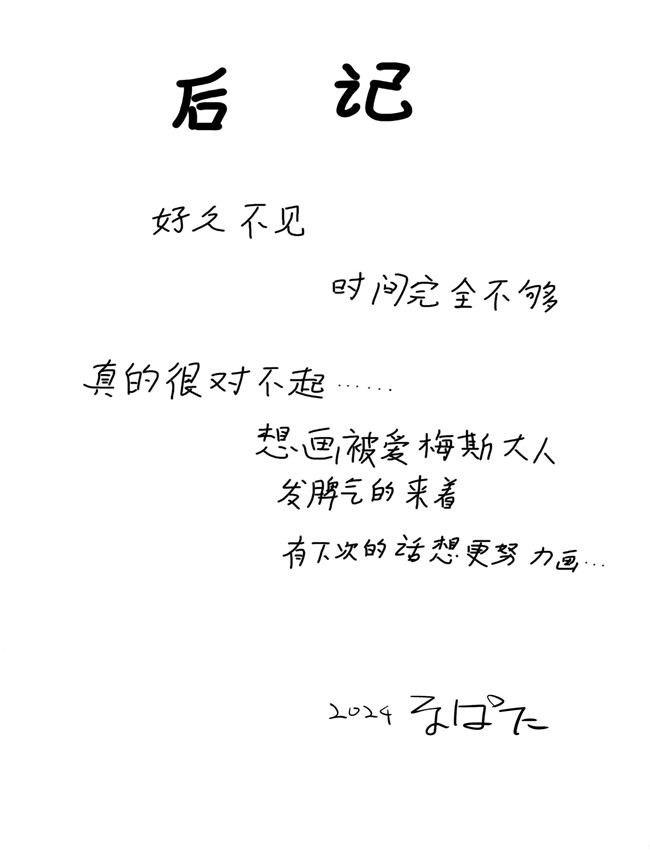 后记
好久不见
时间完全不够
真的很对不起……
想画被爱梅斯大人
发脾气的来着
有下次的话想更努力画…
2024 るぱた